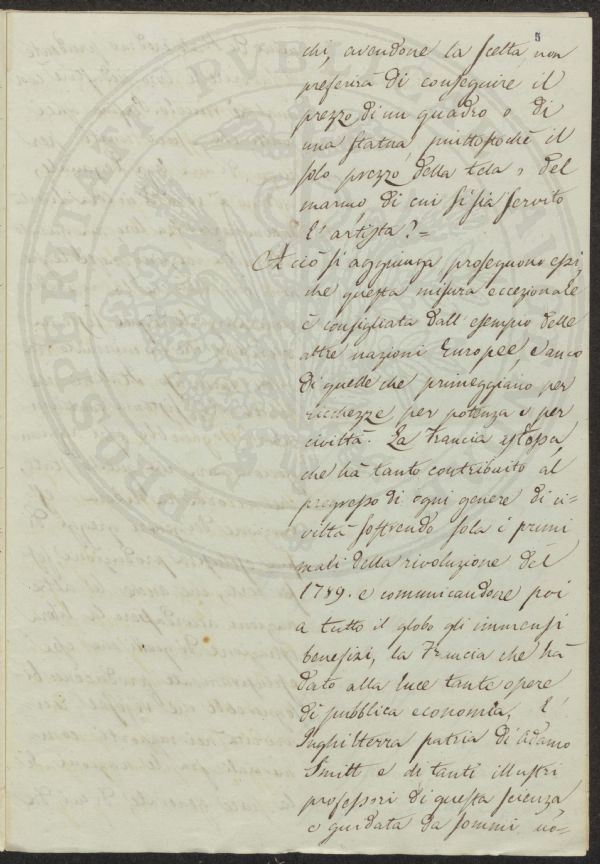 5
chi, avendone la scelta, non
preferirà di conseguire il
prezzo di un quadro o di
una statua, piuttostochè il
solo prezzo della tela o del
marmo di cui si sia servito
l'artista?=
A ciò si aggiunga proseguono essi,
che questa misura eccezionale
è consigliata dall'esempio delle
altre nazioni Europee, e anco
di quelle che primeggiano per
ricchezze, per potenza e per
civiltà. La Francia istessa,
che hà tanto contribuito al
progresso di ogni genere di ci=
viltà soffrendo sola i primi
mali della rivoluzione del
1789. e comunicandone poi
a tutto il globo gli immensi
benefizi, la Francia che hà
dato alla luce tante opere
di pubblica economia, l'
Inghilterra patria di Adamo
Smitt e di tanti illustri
professori di questa scienza,
e guidata da sommi uo=